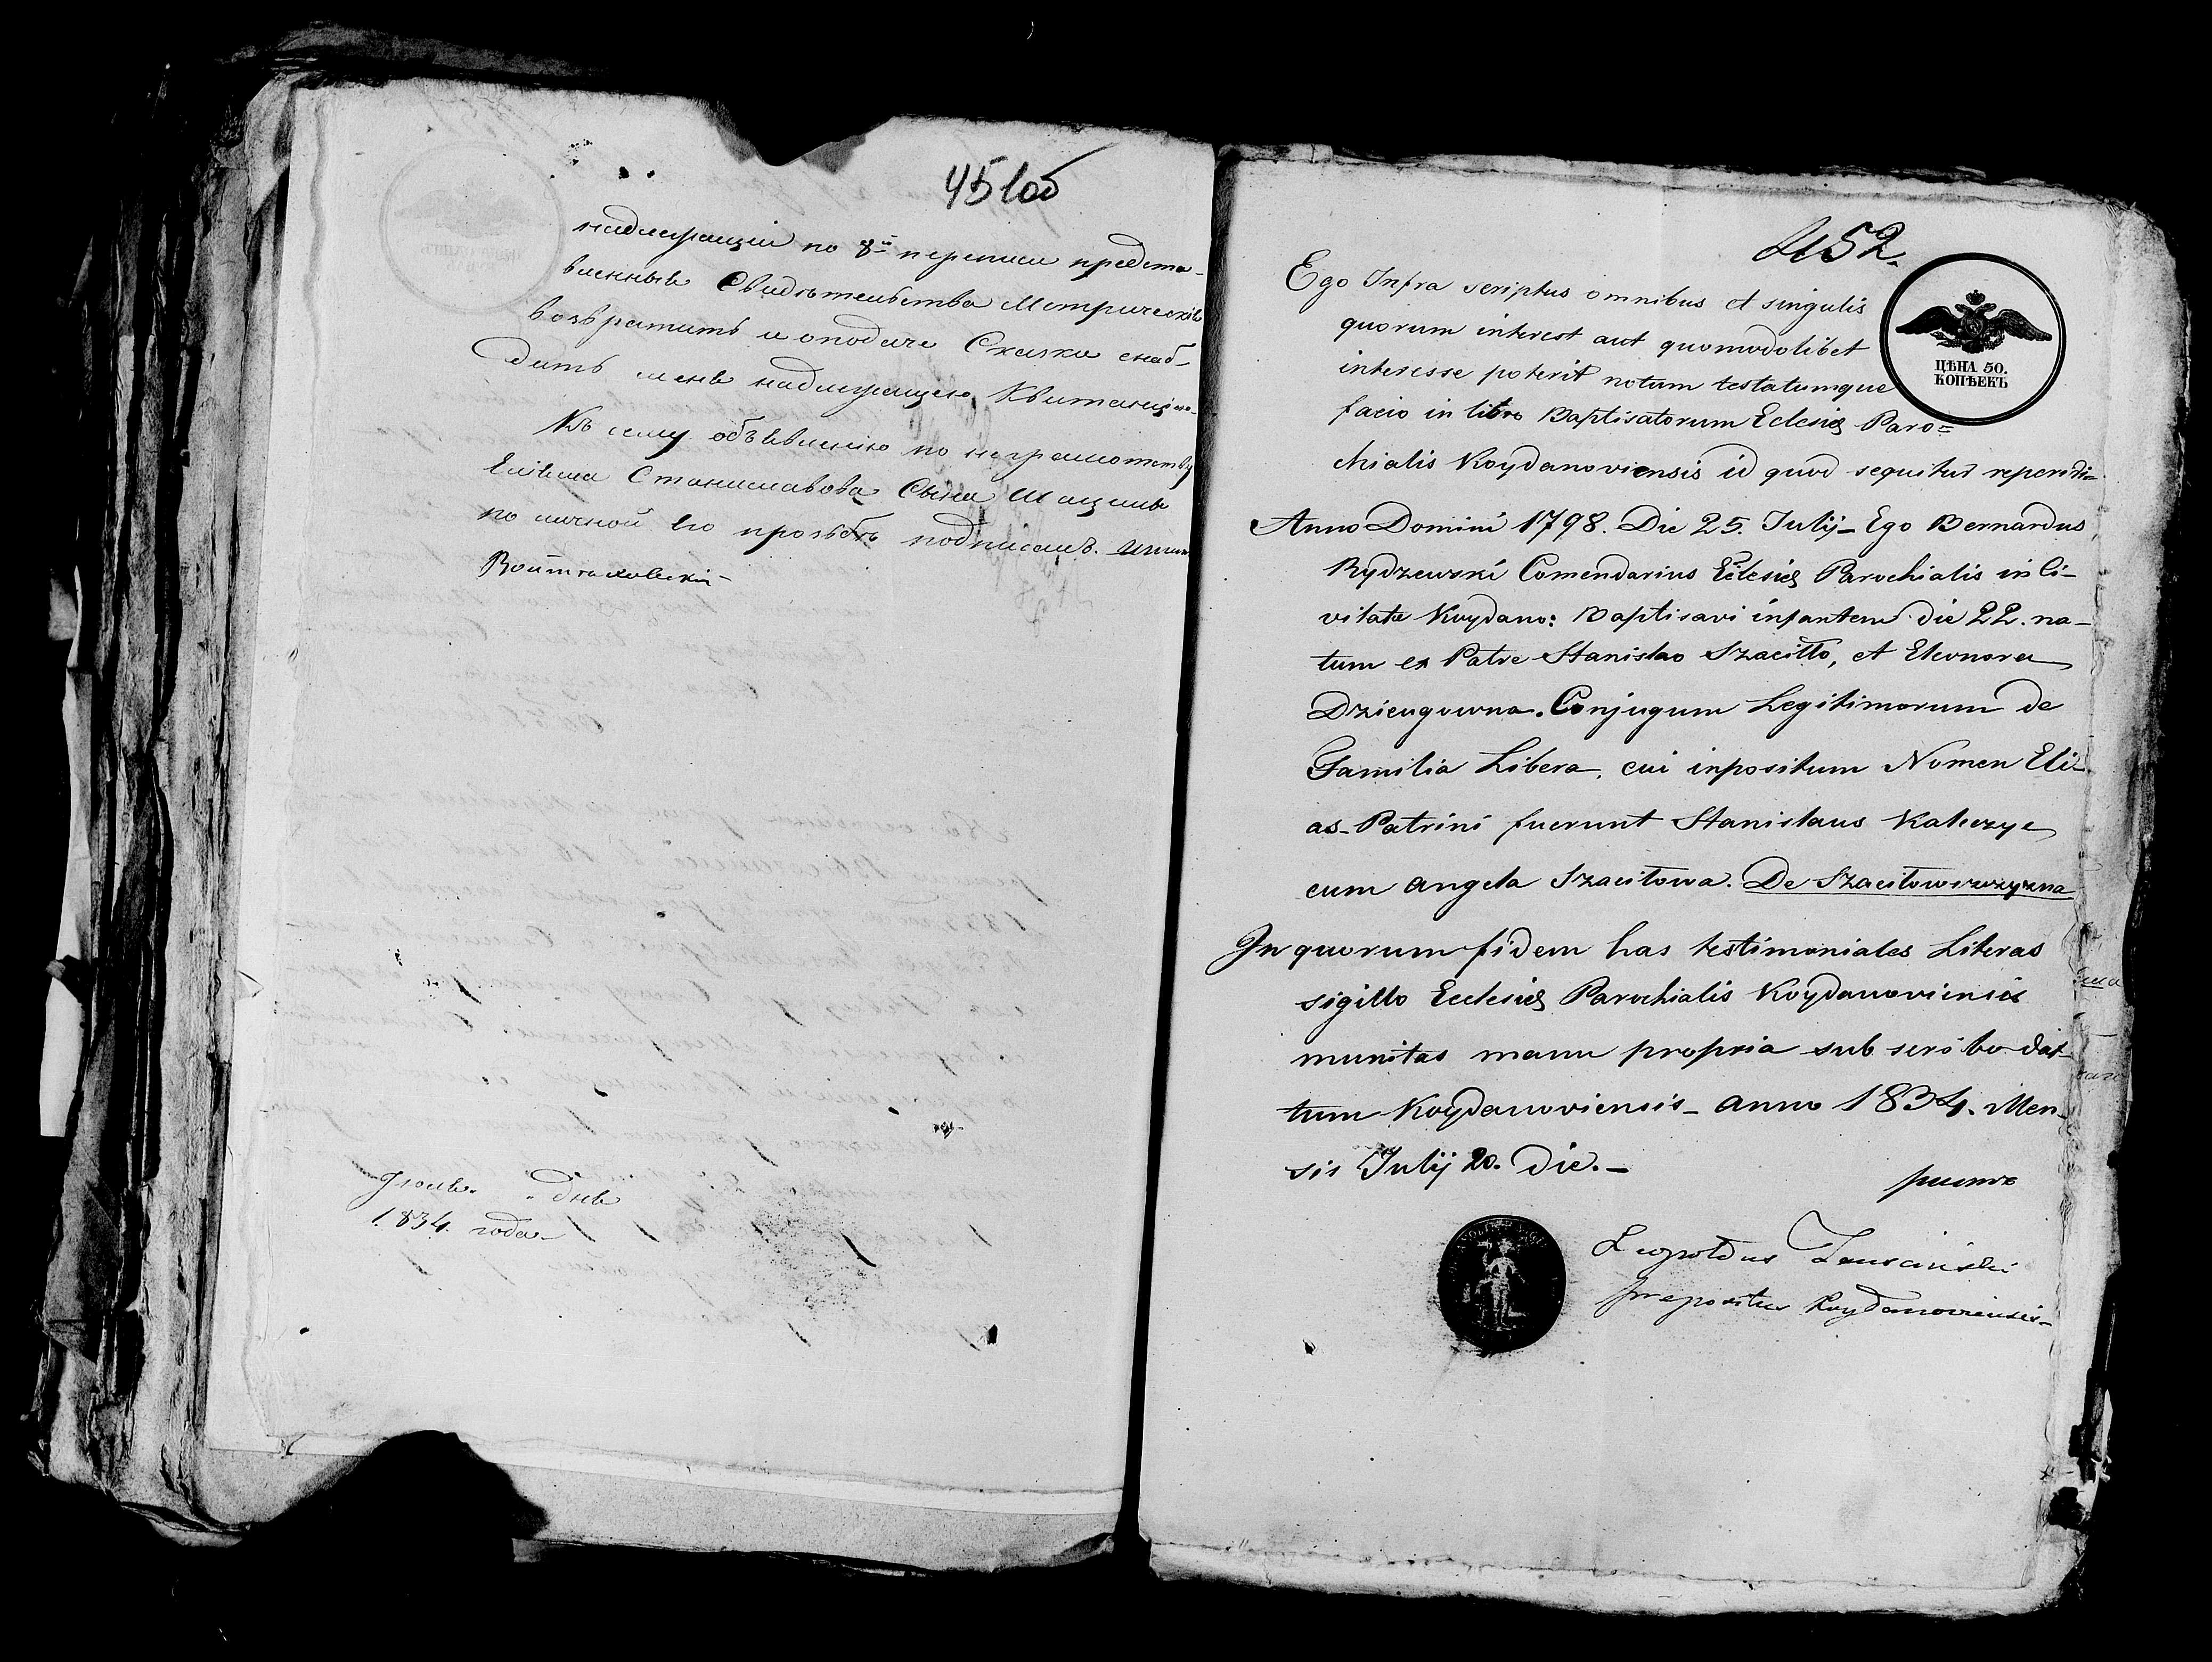 451об
надлежащии по 8й переписи предста-
вленныя Свидѣтельства Метрическія
возвратить и оподаче Сказки снаб-
дить меня надлежащею Квитанціею.
Къ сему объявленію по неграмотству
Еліяша Станиславова Сына Шацилы
по личной его прозьбѣ подписалъ.
Іюля. " дня
1834. года
452.
ЦѢНА 50.
КОПѢЕКЪ
Ego Infra scriptus omnibus et singulis
quorum interest aut quomodolibet
interesse poterit notum testatumque
facio in libro Baptisatorum Eclesiæ Paro=
chialis Koydanoviensis id quod sequitur reperiri=
Anno Domini 1798. Die 25. Julij_ Ego Bernardus
Rydzewski Comendarius Eclesiæ Parochialis in Ci-
vitate Koydano: Baptisavi infantem die 22. na-
tum ex Patre Stanislao Szaciłło, et Eleonora
Dzieugowna. Conjugum Legitimorum de
Familia Libera, cui inpositum Nomen Eli-
as_ Patrini fuerunt Stanislaus Kaleczyc
cum Angela Szaciłowa. De Szaciłowszczyzna
In quorum fidem has testimoniales Literas
sigillo Ecclesiæ Parochialis Koydanoviensis
munitas manu propria sub scribo dat-
tum Koydanoviensis_ anno 1834. Men-
sis Julij 20. Die._
Leopoldus
prepositus Koydanoviensis_